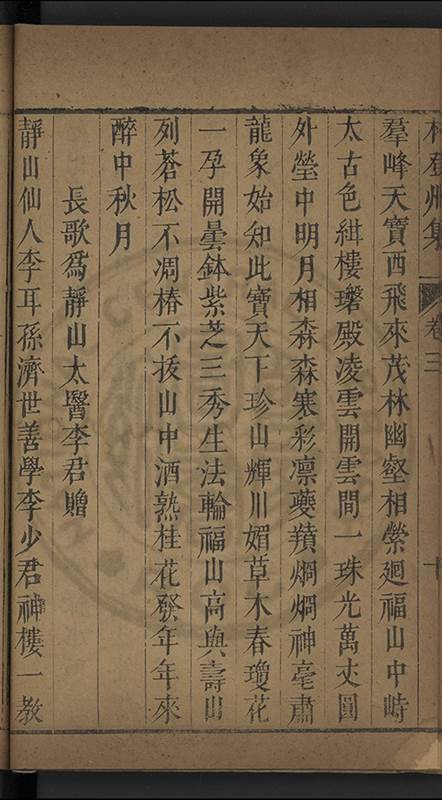 林登州集 卷三 十
羣峰天寶西飛來茂林幽壑相縈廻福山中峙
太古色紺樓礶殿凌雲開雲間一珠光萬丈圓
外瑩中明月相森森寒彩凛夔䫉烱烱神毫肅
龍象始知此寶天下珍山輝川媚草木春瓊花
一孕開曇鉢紫芝三秀生法輪福山高與壽山
列蒼松不凋椿不拔山中酒熟桂花發年年來
醉中秋月
長歌爲靜山太醫李君贈
靜山仙人李耳孫濟世善學李少君神樓一教